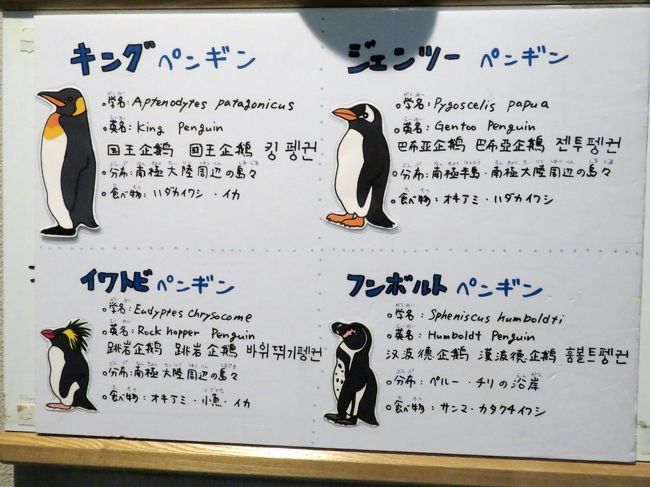 キングペンギン
○学名:Aptenodytes patagonicus
○英名:King Penguin
国王企鹅 國王企鵝 킹 펭귄
○分布:南極大陸周辺の島々
○食べ物:ハダカイワシ・イカ
ジェンツーペンギン
○学名:Pygoscelis papua
○英名:Gentoo Penguin
巴布亚企鹅 巴布亞企鵝 젠투펭귄
○分布:南極半島・南極大陸周辺の島々
○食べ物:オキアミ・ハダカイワシ
イワトビペンギン
○学名:Eudyptes chrysocome
○英名:Rock hopper Penguin
跳岩企鹅 跳岩企鵝 바위뛰기펭귄
○分布:南極大陸周辺の島々
○食べ物:オキアミ・小魚・イカ
フンボルトペンギン
○学名:Spheniscus humboldti
○英名:Humboldt Penguin
汉波德企鹅 漢波德企鵝 훔볼트펭귄
○分布:ペルー・チリの沿岸
○食べ物:サンマ・カタクチイワシ